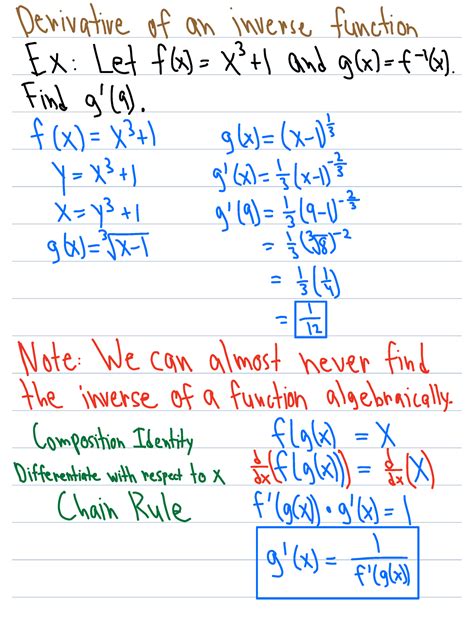 Derivative of an inverse function
Ex: Let f(x) = x³+1 and g(x)=f⁻¹(x).
Find g'(9).
f(x) = x³+1
y = x³+1
x = y³+1
g(x) = ∛(x-1)
g(x) = (x-1)^(1/3)
g'(x) = 1/3 (x-1)^(-2/3)
g'(9) = 1/3 (9-1)^(-2/3)
= 1/3 (∛8)^(-2)
= 1/3 (1/4)
= 1/12
Note: We can almost never find
the inverse of a function algebraically.
Composition Identity f(g(x)) = x
Differentiate with respect to x d/dx (f(g(x))) = d/dx (x)
Chain Rule f'(g(x)) · g'(x) = 1
g'(x) = 1/f'(g(x))